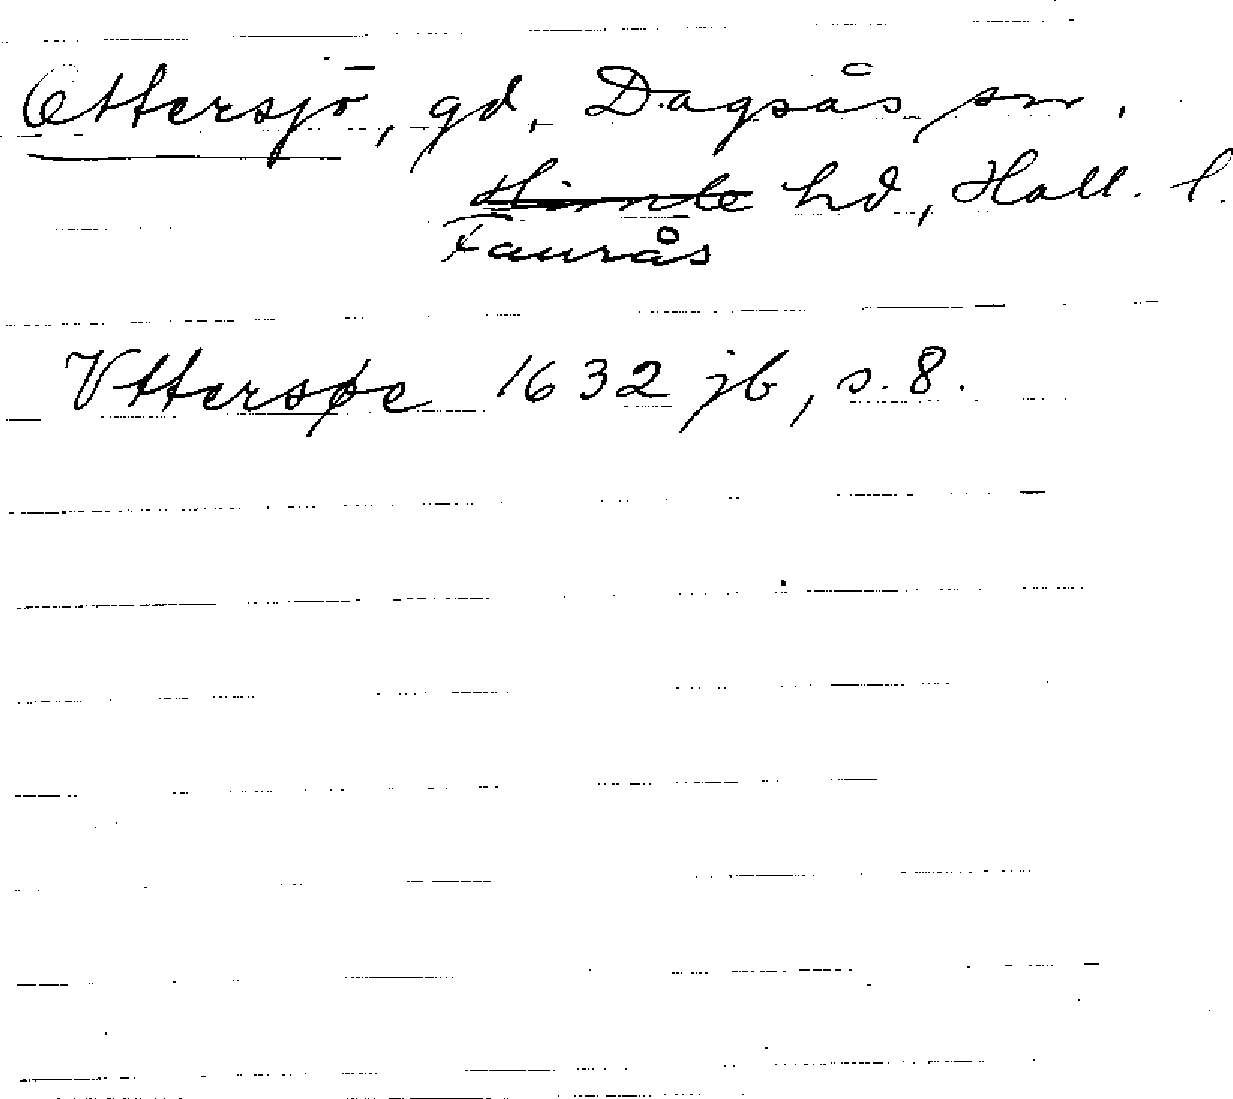 Ottersjö, gd, Dagsås sn.
Himle hd, Hall. l.
Faurås
Vttersøe 1632 jb, s. 8.